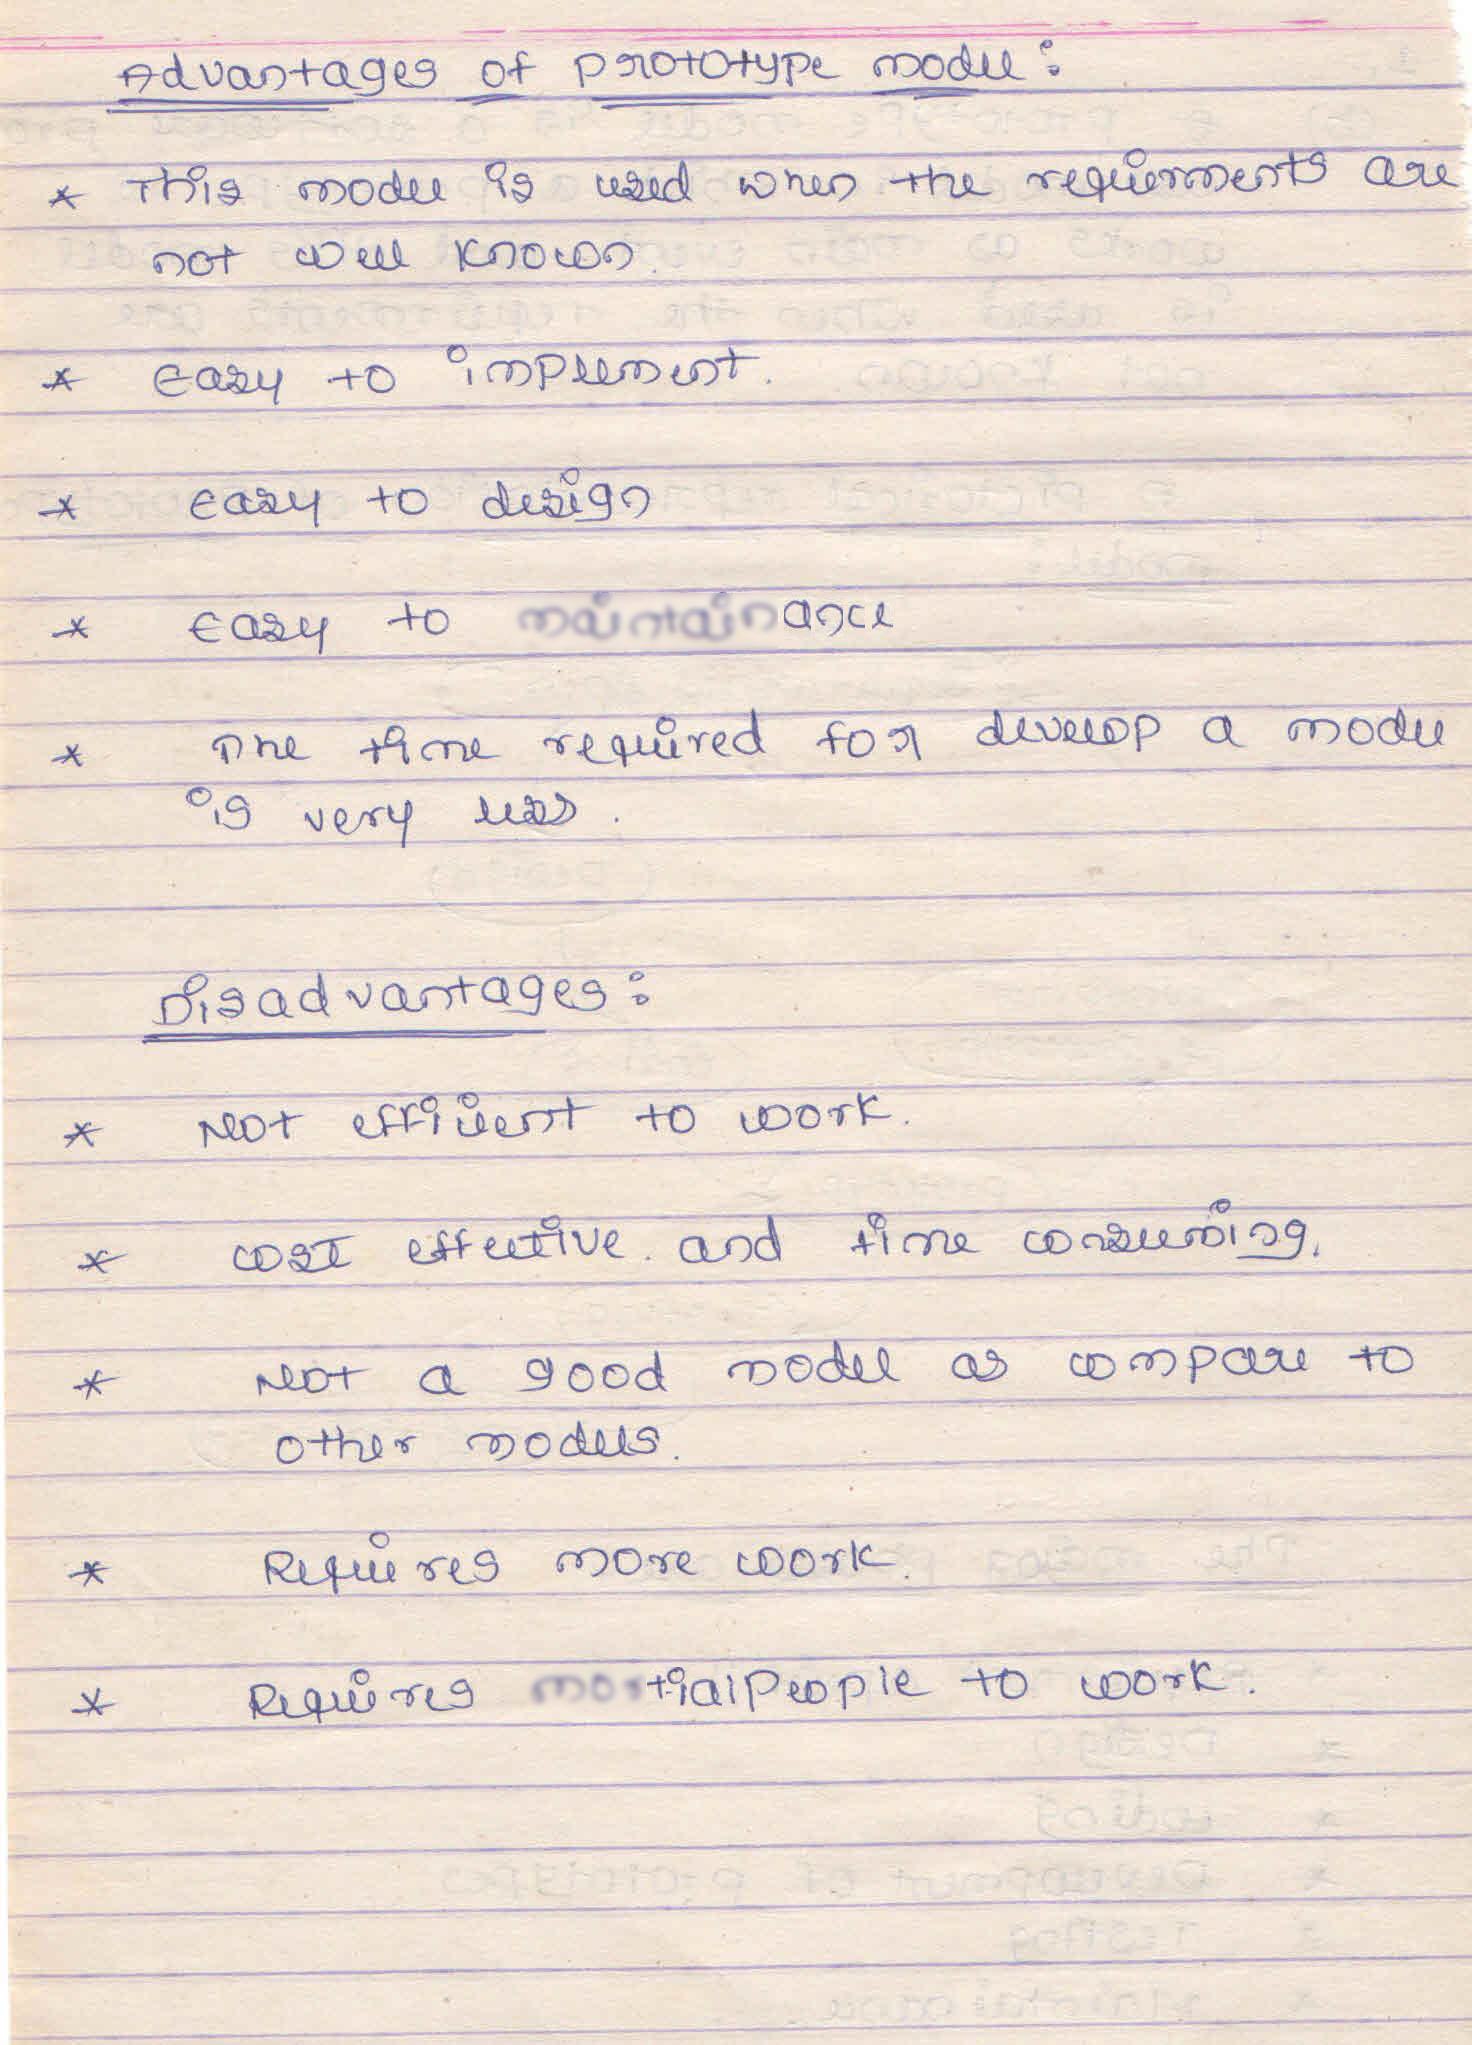 Advantages of prototype model:
* This model is used when the requierments are
not well known.
* Easy to implement.
* Easy to design
* Easy to
* The time required for develop a model
is very less.
Disadvantages:
* Not efficient to work.
* cost effective. and time consuming.
* Not a good model as compare to
other models.
* Requires more work.
* Requires people to work.